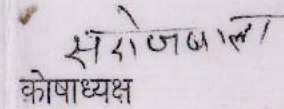 सरोजबाला
कोषाध्यक्ष